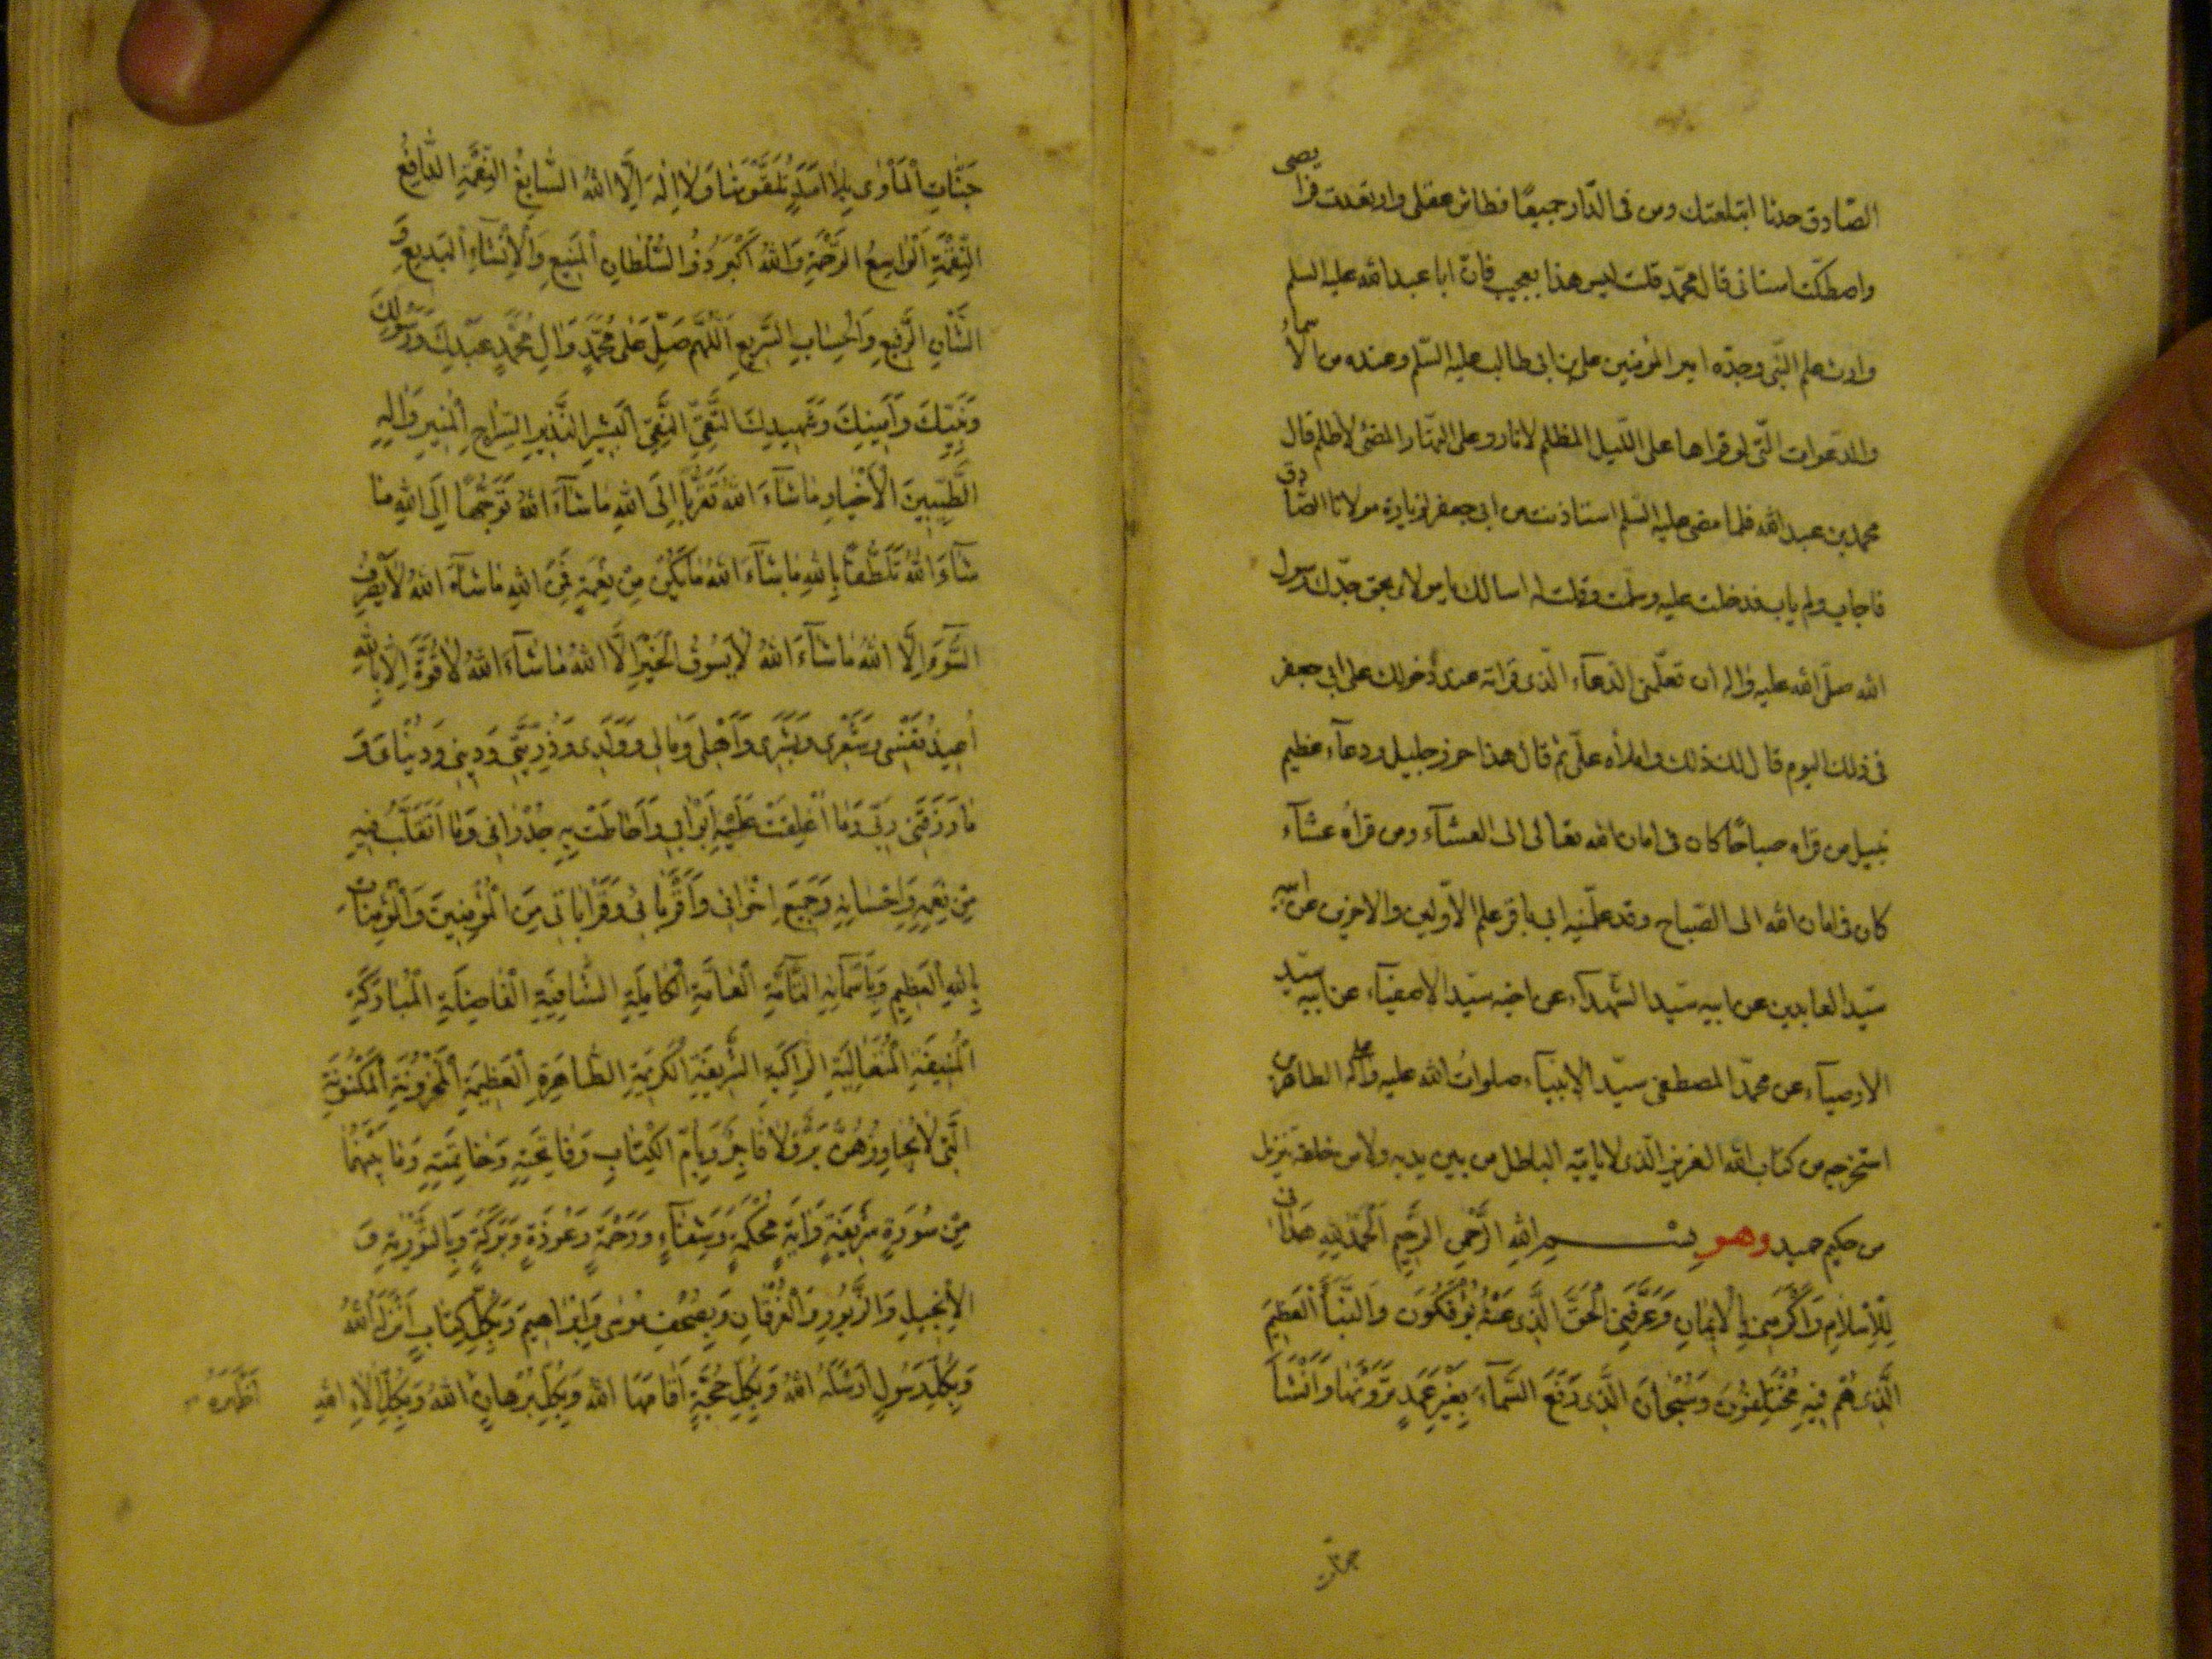 الصّادق حدثا ابتلعتك ومن فى الدّار جميعًا فطاش عقلى وارتعدت فرايصى
واصطكّت اسنانى قال محمّد قلت ليس هذا بعجيب فانّ ابا عبد الله عليه السلم
وارث علم النّبى وجدّه امير المؤمنين على بن ابى طالب عليه السّلم وعنده من الاسماء
والدّعوات الّتى لو قراها على اللّيل المظلم لانار وعلى النهّار المضئ لاظلم قال
محمد بن عبد الله فلما مضى عليه السّلم استاذنت من ابى جعفر لزيارة مولانا الصّادق
فاجاب ولم ياب فدخلت عليه وسلّمت وقلت له اسالك يا مولاى بحق جدّك رسول
الله صلّى الله عليه واله ان تعلّمنى الدّعآء الّذى قراته عند دخولك على ابى جعفر
فى ذلك اليوم قال لك ذلك واملاه علّى ثم قال هذا حرز جليل ودعآء عظيم
نبيل من قراه صباحًا كان فى امان الله تعالى الى العشآء ومن قراه عشآء
كان فى امان الله الى الصّباح وقد علّمنيه ابى باقر علم الاوّلين والاخرين عن ابيه
سيّد العابدين عن ابيه سيّد الشهدآء عن اخيه سيّد الاصفيآء عن ابيه سيّد
الاوصيآء عن محمّد المصطفى سيّد الانبيآء صلوات الله عليه واله الطاهرين
استخرجه من كتاب الله العزيز الّذى لا ياتيه الباطل من بين يديه ولا من خلفه تنزيل
من حكيم حميد وهو بِسْمِ اللهِ الرَّحْمنِ الرَّحِيمِ اَلْحَمْدُ لِلّهِ هَدٰانِى
لِلْاِسْلٰامِ وَاَكْرَمَنِى بِالْاِيمٰانِ وَعَرَّفَنِى الْحَقَّ الَّذِى عَنْهُ يُؤْفَكُونَ وَالنَّبَأَ الْعَظِيمَ
الَّذِى هُمْ فِيهِ مُخْتَلِفُونَ وَسُبْحٰانَ الَّذِى رَفَعَ السَّمآءَ بِغَيْرِ عَمَدٍ تَرَوْنَهٰا وَاَنْشَأَ
جنّات
جَنّٰاتِ الْمَأْوٰى بِلٰا اَمَدٍ تَلْقَوْنَهٰا وَلٰا اِلٰهَ اِلَّا اللهُ السّٰابِغُ النِّعْمَةِ الدّٰافِعُ
النِّقْمَةِ اَلْوٰاسِعُ الرَّحْمَةِ وَاللهُ اَكْبَرُ ذُو السُّلْطٰانِ الْمَنِيعِ وَالْاِنْشٰآءِ الْبَدِيعِ وَ
الشَّأْنِ الرَّفِيعِ وَالْحِسٰابِ السَّرِيعِ اَللّٰهُمَّ صَلِّ عَلٰى مُحَمَّدٍ وَاٰلِ مُحَمَّدٍ عَبْدِكَ وَرَسُولِكَ
وَنَبِيِّكَ وَاَمِينِكَ وَشَهِيدِكَ التَّقِيِّ النَّقِيِّ الْبَشِيرِ النَّذِيرِ السِّرٰاجِ الْمُنِيرِ وَاٰلِهِ
الطَّيِّبِينَ الْاَخْيٰارِ مٰا شٰآءَ اللهُ تَقَرُّبًا اِلَى اللهِ مٰا شٰآءَ اللهُ تَوَجُّهًا اِلَى اللهِ مٰا
شٰآءَ اللهُ تَلَطُّفًا بِاللهِ مٰا شٰآءَ اللهُ مٰا يَكُنْ مِنْ نِعْمَةٍ فَمِنَ اللهِ مٰا شٰآءَ اللهُ لٰا يَصْرِفُ
السُّوٓءَ اِلَّا اللهُ مٰا شٰآءَ اللهُ لٰا يَسُوقُ الْخَيْرَ اِلَّا اللهُ مٰا شٰآءَ اللهُ لٰا قُوَّةَ اِلّٰا بِاللهِ
اُعِيذُ نَفْسِى وَشَعْرِى وَبَشَرِى وَاَهْلِى وَمٰالِى وَوَلَدِى وَذُرِّيَّتِى وَدِينِى وَدُنْيٰاىَ وَ
مٰا رَزَقَنِى رَبِّى وَمٰا اُغْلِقَتْ عَلَيْهِ اَبْوٰابِى وَاَحٰاطَتْ بِهِ جُدْرٰانِى وَمٰا اَتَقَلَّبُ فِيهِ
مِنْ نِعَمِهِ وَاِحْسٰانِهِ وَجَمِيعَ اِخْوٰانِى وَاَقْرِبٰائِى وَقَرٰابٰاتِى مِنَ الْمُؤْمِنِينَ وَالْمُؤْمِنٰاتِ
بِاللهِ الْعَظِيمِ وَبِاَسْمٰآئِهِ التّٰآمَّةِ الْعٰامَّةِ الْكٰامِلَةِ الشّٰافِيَةِ الْفٰاضِلَةِ الْمُبٰارَكَةِ
الْمُنِيفَةِ الْمُتَعٰالِيَةِ الزّٰاكِيَةِ الشَّرِيفَةِ الْكَرِيمَةِ الطّٰاهِرَةِ الْعَظِيمَةِ الْمَخْزُونَةِ الْمَكْنُونَةِ
الَّتِى لٰا يُجٰاوِزُهُنَّ بَرٌّ وَلٰا فٰاجِرٌ وَبِاُمِّ الْكِتٰابِ وَفٰاتِحَتِهِ وَخٰاتِمَتِهِ وَمٰا بَيْنَهُمٰا
مِنْ سُورَةٍ شَرِيفَةٍ وَاٰيَةٍ مُحْكَمَةٍ وَشِفٰآءٍ وَرَحْمَةٍ وَعُوذَةٍ وَبَرَكَةٍ وَبِالتَّوْرٰيةِ وَ
الْاِنْجِيلِ وَالزَّبُورِ وَالْفُرْقٰانِ وَبِصُحُفِ مُوسٰى وَاِبْرٰاهِيمَ وَبِكُلِّ كِتٰابٍ اَنْزَلَهُ اللهُ
وَبِكُلِّ رَسُولٍ اَرْسَلَهُ اللهُ وَبِكُلِّ حُجَّةٍ اَقٰامَهَا اللهُ وَبِكُلِّ بُرْهٰانٍ اللهُ وَبِكُلِّ اٰلٰاءِ اللهِ
اَظْهَرَهُ